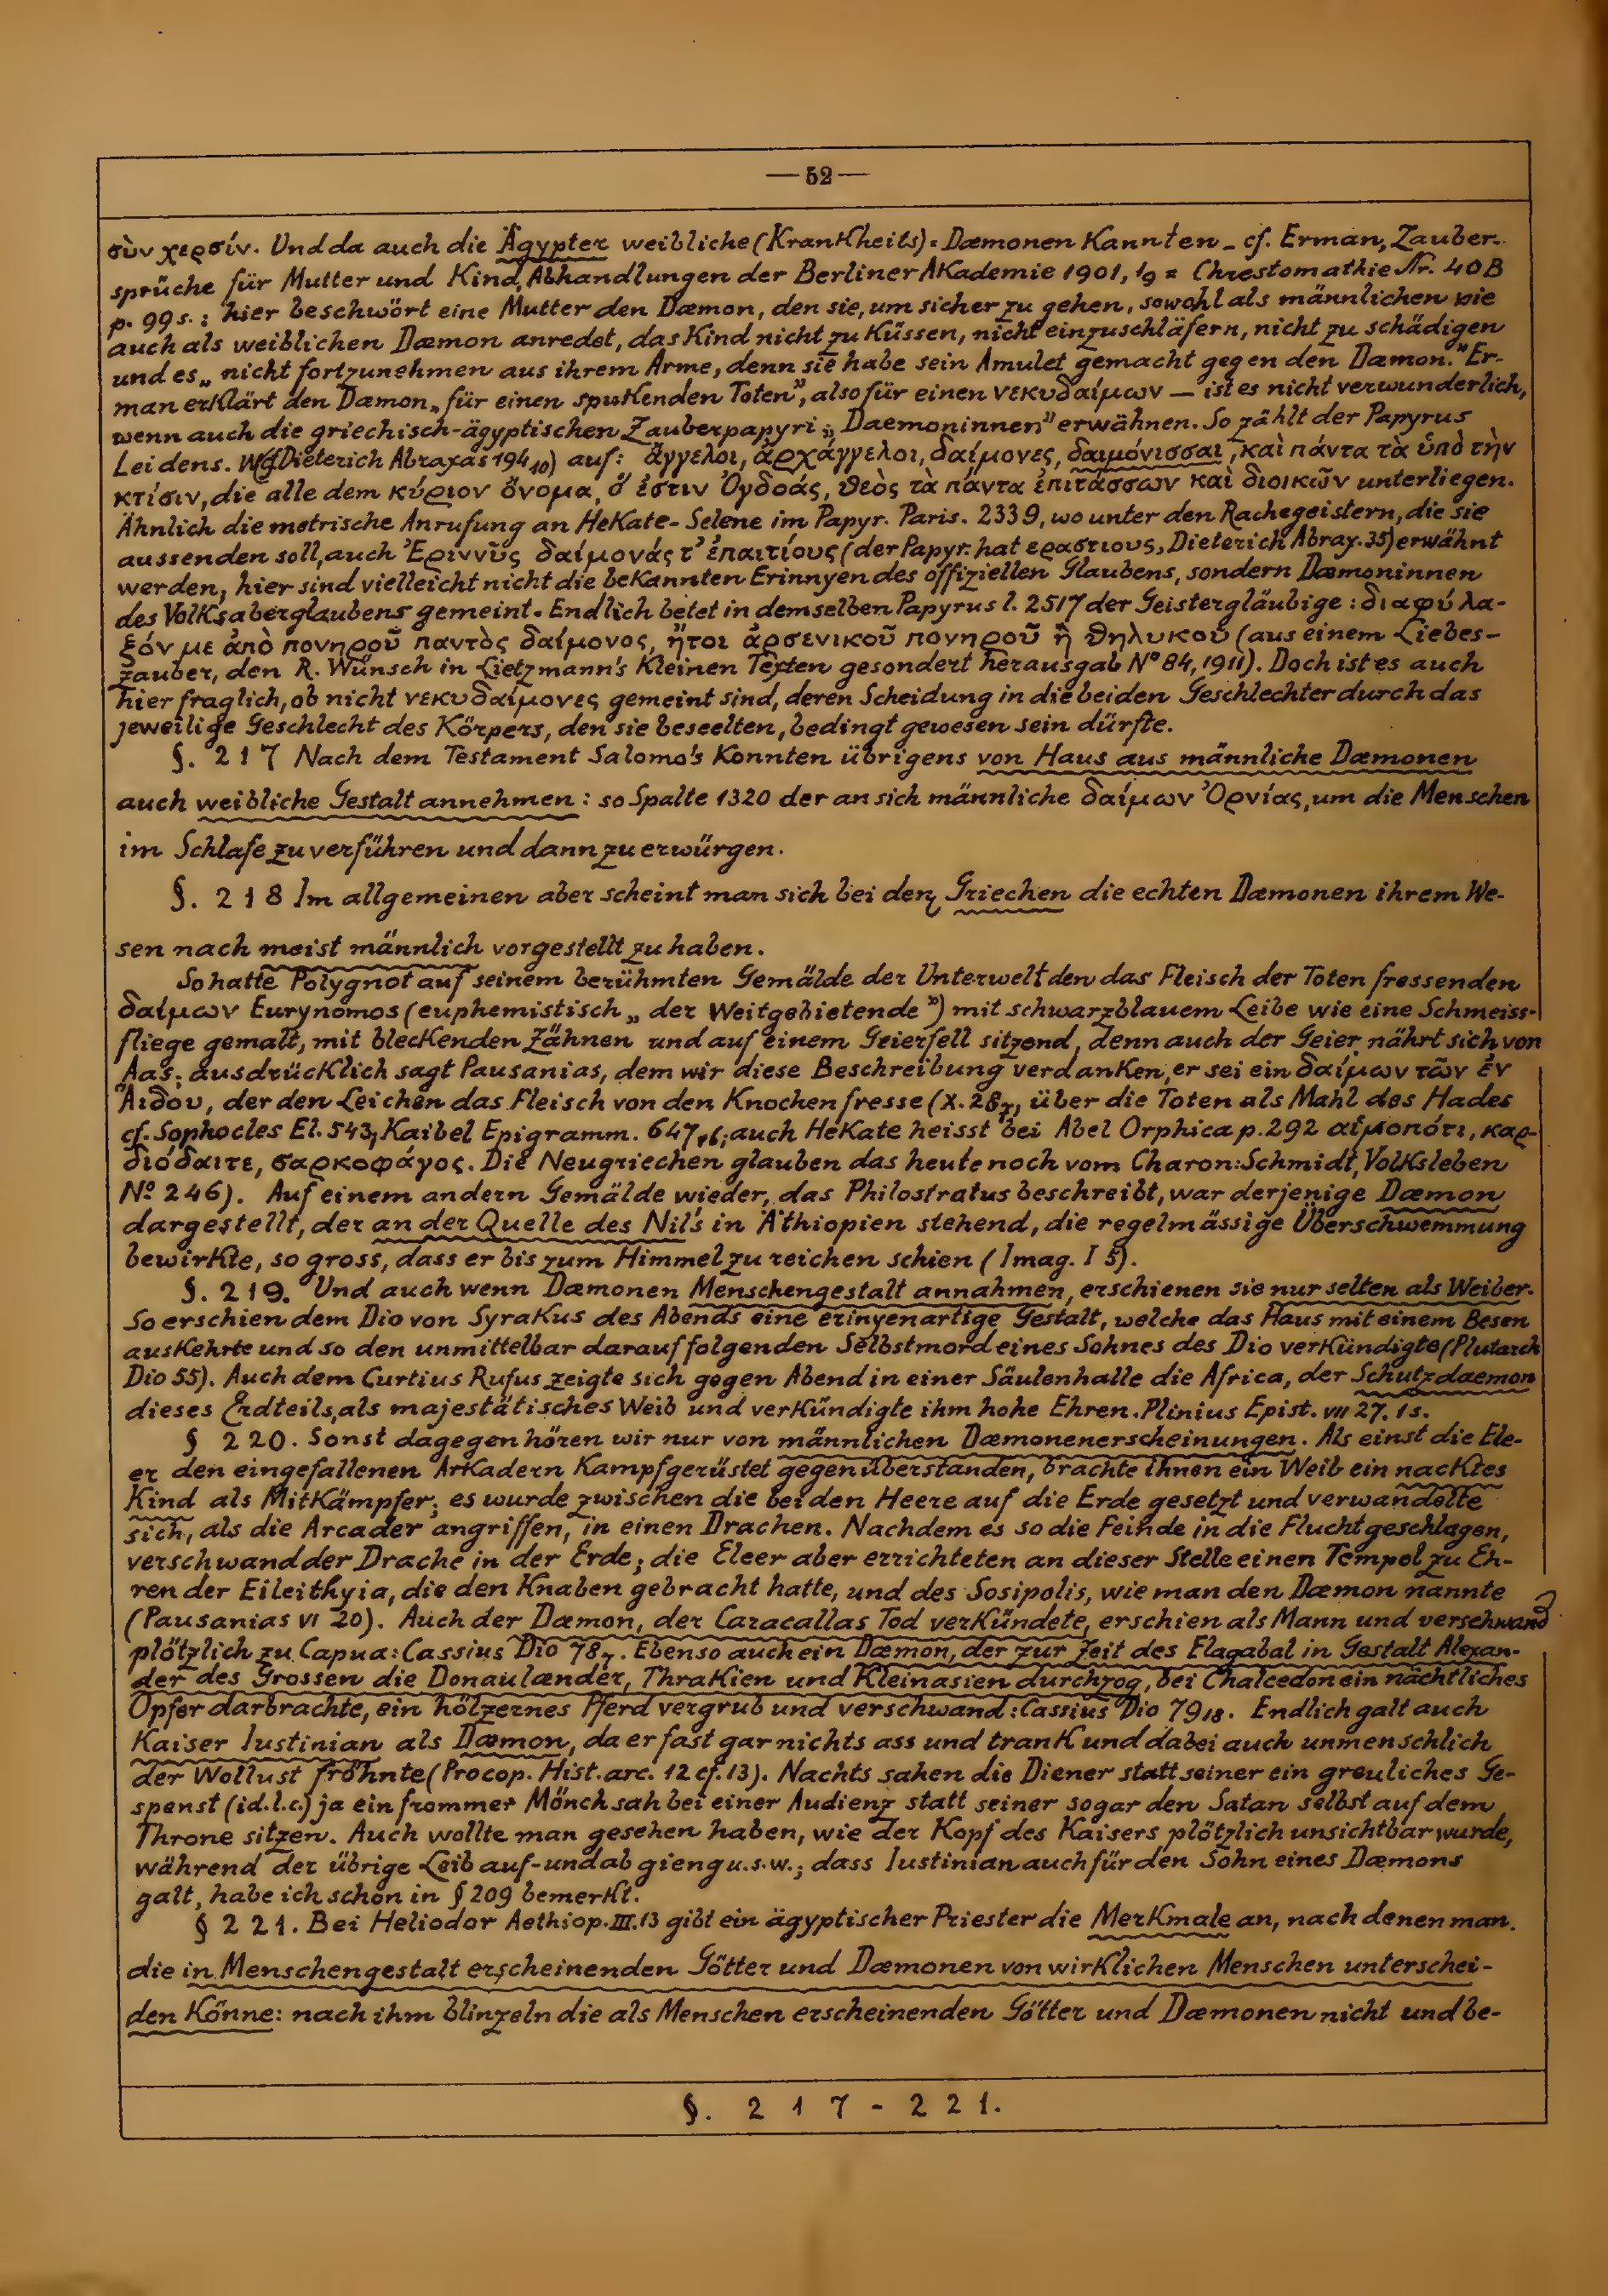 — 52 —
σὺν χερσίν. Und da auch die Ägypter weibliche (Krankheits)=Dæmonen kannten – cf. Erman, Zauber-
sprüche für Mutter und Kind, Abhandlungen der Berliner Akademie 1901, 1₉ = Chrestomathie Nr. 40B
p. 99 s.: hier beschwört eine Mutter den Dæmon, den sie, um sicher zu gehen, sowohl als männlichen wie
auch als weiblichen Dæmon anredet, das Kind nicht zu küssen, nicht einzuschläfern, nicht zu schädigen
und es „nicht fortzunehmen aus ihrem Arme, denn sie habe sein Amulet gemacht gegen den Dæmon.” Er-
man erklärt den Dæmon „für einen spukenden Toten”, also für einen νεκυδαίμων — ist es nicht verwunderlich,
wenn auch die griechisch-ägyptischen Zauberpapyri „Daemoninnen” erwähnen. So zählt der Papyrus
Leidens. W (Dieterich Abraxas 194₁₀) auf: ἄγγελοι, ἀρχάγγελοι, δαίμονες, δαιμόνισσαι, καὶ πάντα τὰ ὑπὸ τὴν
κτίσιν, die alle dem κύριον ὄνομα, ὅ ἐστιν Ὀγδοάς, θεὸς τὰ πάντα ἐπιτάσσων καὶ διοικῶν unterliegen.
Ähnlich die metrische Anrufung an Hekate-Selene im Papyr. Paris. 2339, wo unter den Rachegeistern, die sie
aussenden soll, auch Ἐριννῦς δαίμονάς τ’ ἐπαιτίους (der Papyr. hat εραστιους, Dieterich Abrax. 35) erwähnt
werden, hier sind vielleicht nicht die bekannten Erinnyen des offiziellen Glaubens, sondern Dæmoninnen
des Volksaberglaubens gemeint. Endlich betet in demselben Papyrus l. 2517 der Geistergläubige: διαφύλα-
ξόν με ἀπὸ πονηροῦ παντὸς δαίμονος, ἤτοι ἀρσενικοῦ πονηροῦ ἢ θηλυκοῦ (aus einem Liebes-
zauber, den R. Wünsch in Lietzmann's Kleinen Texten gesondert herausgab Nº 84, 1911). Doch ist es auch
hier fraglich, ob nicht νεκυδαίμονες gemeint sind, deren Scheidung in die beiden Geschlechter durch das
jeweilige Geschlecht des Körpers, den sie beseelten, bedingt gewesen sein dürfte.
§. 217 Nach dem Testament Salomo's konnten übrigens von Haus aus männliche Dæmonen
auch weibliche Gestalt annehmen: so Spalte 1320 der an sich männliche δαίμων Ὀρνίας, um die Menschen
im Schlafe zu verführen und dann zu erwürgen.
§. 218 Im allgemeinen aber scheint man sich bei den Griechen die echten Dæmonen ihrem We-
sen nach meist männlich vorgestellt zu haben.
So hatte Polygnot auf seinem berühmten Gemälde der Unterwelt den das Fleisch der Toten fressenden
δαίμων Eurynomos (euphemistisch „der Weitgebietende”) mit schwarzblauem Leibe wie eine Schmeiss-
fliege gemalt, mit bleckenden Zähnen und auf einem Geierfell sitzend, denn auch der Geier nährt sich von
Aas; ausdrücklich sagt Pausanias, dem wir diese Beschreibung verdanken, er sei ein δαίμων τῶν ἐν
Ἅιδου, der den Leichen das Fleisch von den Knochen fresse (X. 28₇, über die Toten als Mahl des Hades
cf. Sophocles El. 543, Kaibel Epigramm. 647, auch Hekate heisst bei Abel Orphica p. 292 αἱμοπότι, καρ-
διόδαιτε, σαρκοφάγος. Die Neugriechen glauben das heute noch vom Charon: Schmidt, Volksleben
Nº 246). Auf einem andern Gemälde wieder, das Philostratus beschreibt, war derjenige Dæmon
dargestellt, der an der Quelle des Nil's in Äthiopien stehend, die regelmässige Überschwemmung
bewirkte, so gross, dass er bis zum Himmel zu reichen schien (Imag. I 5).
§. 219. Und auch wenn Dæmonen Menschengestalt annahmen, erschienen sie nur selten als Weiber.
So erschien dem Dio von Syrakus des Abends eine erinyenartige Gestalt, welche das Haus mit einem Besen
auskehrte und so den unmittelbar darauf folgenden Selbstmord eines Sohnes des Dio verkündigte (Plutarch
Dio 55). Auch dem Curtius Rufus zeigte sich gegen Abend in einer Säulenhalle die Africa, der Schutzdaemon
dieses Erdteils, als majestätisches Weib und verkündigte ihm hohe Ehren. Plinius Epist. VII 27. 1s.
§ 220. Sonst dagegen hören wir nur von männlichen Dæmonenerscheinungen. Als einst die Ele-
er den eingefallenen Arkadern kampfgerüstet gegenüberstanden, brachte ihnen ein Weib ein nacktes
Kind als Mitkämpfer; es wurde zwischen die beiden Heere auf die Erde gesetzt und verwandelte
sich, als die Arcader angriffen, in einen Drachen. Nachdem es so die Feinde in die Flucht geschlagen,
verschwand der Drache in der Erde; die Eleer aber errichteten an dieser Stelle einen Tempel zu Eh-
ren der Eileithyia, die den Knaben gebracht hatte, und des Sosipolis, wie man den Dæmon nannte
(Pausanias VI 20). Auch der Dæmon, der Caracallas Tod verkündete, erschien als Mann und verschwand
plötzlich zu Capua: Cassius Dio 78₇. Ebenso auch ein Dæmon, der zur Zeit des Elagabal in Gestalt Alexan-
der des Grossen die Donaulænder, Thrakien und Kleinasien durchzog, bei Chalcedon ein nächtliches
Opfer darbrachte, ein hölzernes Pferd vergrub und verschwand: Cassius Dio 79₁₈. Endlich galt auch
Kaiser Iustinian als Dæmon, da er fast gar nichts ass und trank und dabei auch unmenschlich
der Wollust fröhnte (Procop. Hist. arc. 12 cf. 13). Nachts sahen die Diener statt seiner ein greuliches Ge-
spenst (id. l. c.) ja ein frommer Mönch sah bei einer Audienz statt seiner sogar den Satan selbst auf dem
Throne sitzen. Auch wollte man gesehen haben, wie der Kopf des Kaisers plötzlich unsichtbar wurde,
während der übrige Leib auf- und ab gieng u.s.w.; dass Iustinian auch für den Sohn eines Dæmons
galt, habe ich schon in § 209 bemerkt.
§ 221. Bei Heliodor Aethiop. III. 13 gibt ein ägyptischer Priester die Merkmale an, nach denen man
die in Menschengestalt erscheinenden Götter und Dæmonen von wirklichen Menschen unterschei-
den könne: nach ihm blinzeln die als Menschen erscheinenden Götter und Dæmonen nicht und be-
§. 217 - 221.